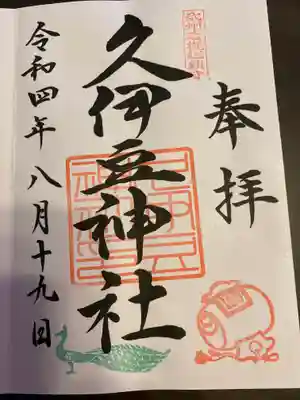 奉拝
久伊豆神社
令和四年八月十九日